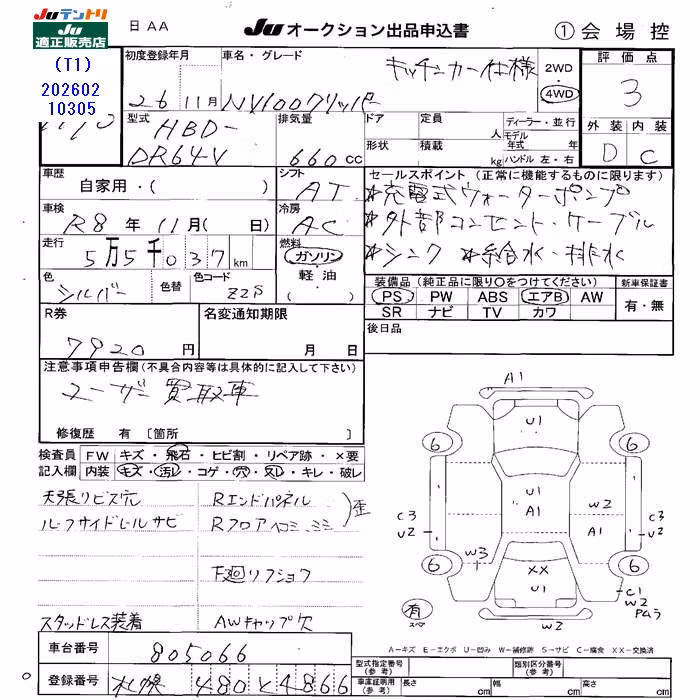 Juテントリ
Ju
適正販売店
(T1)
202602
10305
日AA
Ju オークション出品申込書
① 会場控
初度登録年月
26 11月
車名・グレード
キッチンカー仕様
NV100クリッパー
2WD
4WD
評価点
3
外装 内装
D C
型式
HBD-
DR64V
排気量
660 cc
ドア
定員
人
形状
積載
kg
ディーラー・並行
モデル年式 年
ハンドル 左・右
車歴
自家用・( )
シフト
AT
車検
R8年 11月( 日)
冷房
AC
走行
5万5千037 km
燃料
ガソリン
軽油
( )
色
シルバー
色替
色コード
Z2S
セールスポイント(正常に機能するものに限ります)
*充電式ウォーターポンプ
*外部コンセント・ケーブル
*シンク *給水・排水
装備品(純正品に限り○をつけてください)
PS PW ABS エアB AW
SR ナビ TV カワ
新車保証書
有・無
R券
7920円
名変通知期限
月 日
後日品
注意事項申告欄(不具合内容等は具体的に記入して下さい)
ユーザー買取車
修復歴 有〔箇所 〕
検査員記入欄
FW キズ・飛石・ヒビ割・リペア跡・×要
内装 キズ・汚レ・コゲ・穴・欠し・キレ・破レ
天張リビス穴
ルーフサイドレールサビ
スタッドレス装着
Rエンドパネル
Rフロア
歪
下廻リフショク
AWキャップ欠
A1
U1
6
6
C3
U2
U1
A1
W2
A1
C3
U2
W3
1
6
6
XX
U1
C1
W2
PAムラ
有
スペア
W2
A-キズ E-エクボ U-凹み W-補修跡 S-サビ C-腐食 XX-交換済
車台番号
805066
登録番号
札幌 480 と 4866
型式指定番号(参考)
類別区分番号(参考)
車庫証明用(参考)
長さ cm
幅 cm
高さ cm